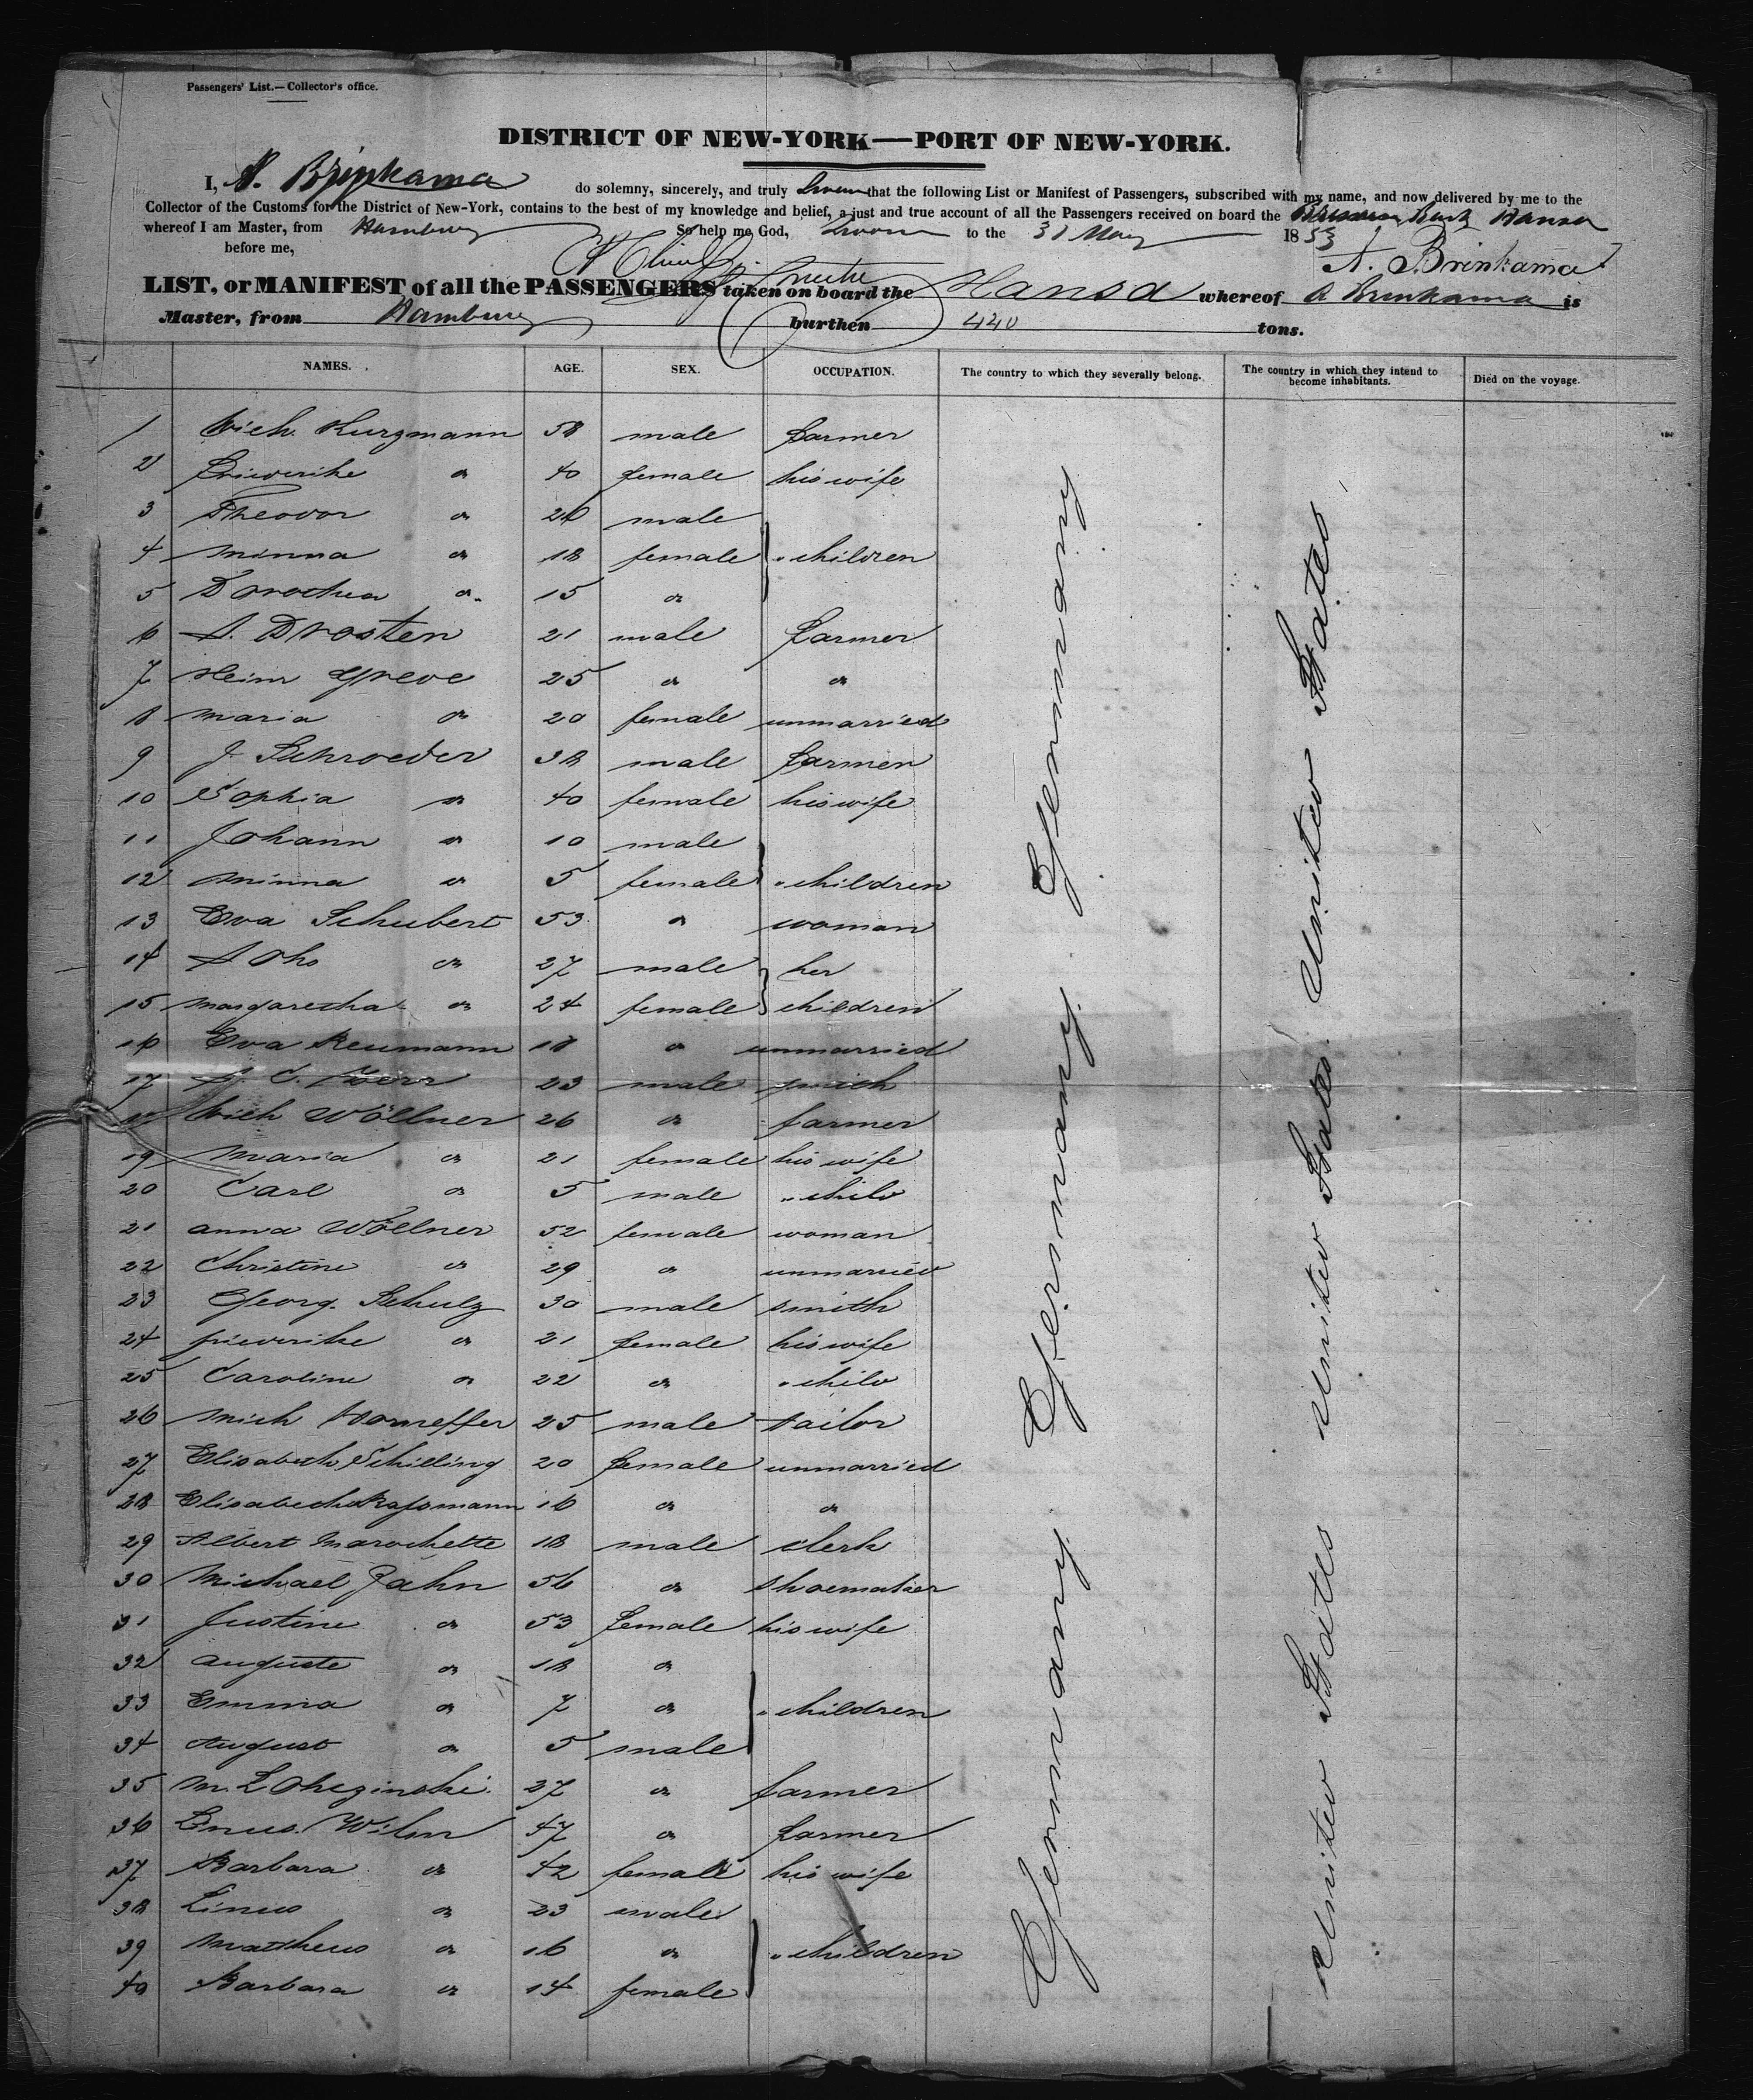 Passengers' List.—Collector's office.
DISTRICT OF NEW-YORK—PORT OF NEW-YORK.
I, A. Brinkama do solemny, sincerely, and truly swear that the following List or Manifest of Passengers, subscribed with my name, and now delivered by me to the
Collector of the Customs for the District of New-York, contains to the best of my knowledge and belief, a just and true account of all the Passengers received on board the Bark Hansa
whereof I am Master, from Hamburg So help me God, Sworn to the 31 May 1853
before me, A. Brinkama
LIST, or MANIFEST of all the PASSENGERS taken on board the Hansa whereof A Brinkama is
Master, from Hamburg burthen 440 tons.
NAMES. AGE. SEX. OCCUPATION. The country to which they severally belong. The country in which they intend to become inhabitants. Died on the voyage.
1 Kurzmann 58 male farmer
2 Friederike " 40 female his wife
3 Theodor " 20 male
4 Minna " 18 female " children
5 Dorothea " 15 "
6 A. Drosten 21 male farmer
7 Heinr Greve 25 " "
8 Maria " 20 female unmarried
9 J. Schroeder 38 male farmer
10 Sophia " 40 female his wife
11 Johann " 10 male
12 Minna " 5 female " children
13 Eva Schubert 53 " woman
14 " 27 male her
15 Margaretha " 24 female children
16 Eva Reumann 18 " unmarried
17 23 male smith
18 Wöllner 26 " farmer
19 Maria " 21 female his wife
20 Carl " 5 male " child
21 Anna Wöllner 52 female woman
22 Christine " 29 " unmarried
23 Georg. Schulz 30 male smith
24 friederike " 21 female his wife
25 Caroline " 22 " " child
26 Mich Horneffer 25 male tailor
27 Elisabeth Schilling 20 female unmarried
28 Elisabeth Rassmann 16 " "
29 Albert Marochette 18 male clerk
30 Michael Jahn 56 " shoemaker
31 Justine " 53 female his wife
32 Auguste " 18 "
33 Emma " 7 " " children
34 August " 5 male
35 M. 27 " farmer
36 Linus 47 " farmer
37 Barbara " 42 female his wife
38 Linus " 23 male
39 Mattheus " 16 " " children
40 Barbara " 14 female
Germany Germany Germany Germany
United States United States United States